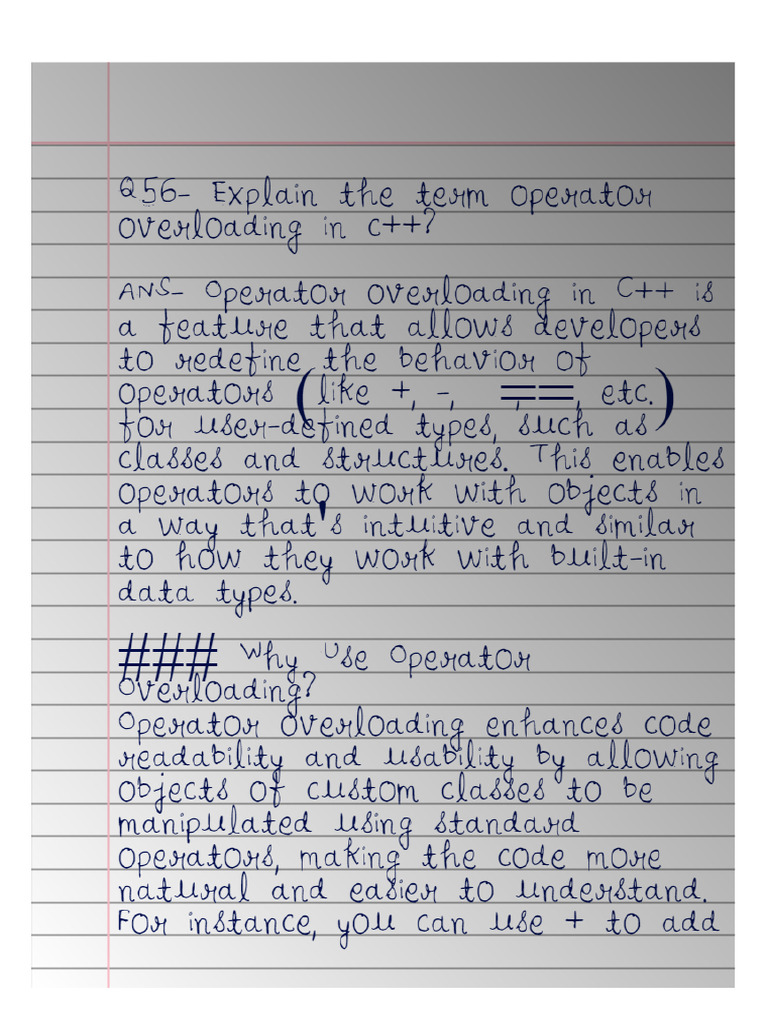 Q56- Explain the term operator
overloading in c++?
ANS- Operator overloading in C++ is
a feature that allows developers
to redefine the behavior of
operators (like +, -, ==, etc.)
for user-defined types, such as
classes and structures. This enables
operators to work with objects in
a way that's intuitive and similar
to how they work with built-in
data types.
### Why Use Operator
Overloading?
Operator overloading enhances code
readability and usability by allowing
objects of custom classes to be
manipulated using standard
operators, making the code more
natural and easier to understand.
For instance, you can use + to add